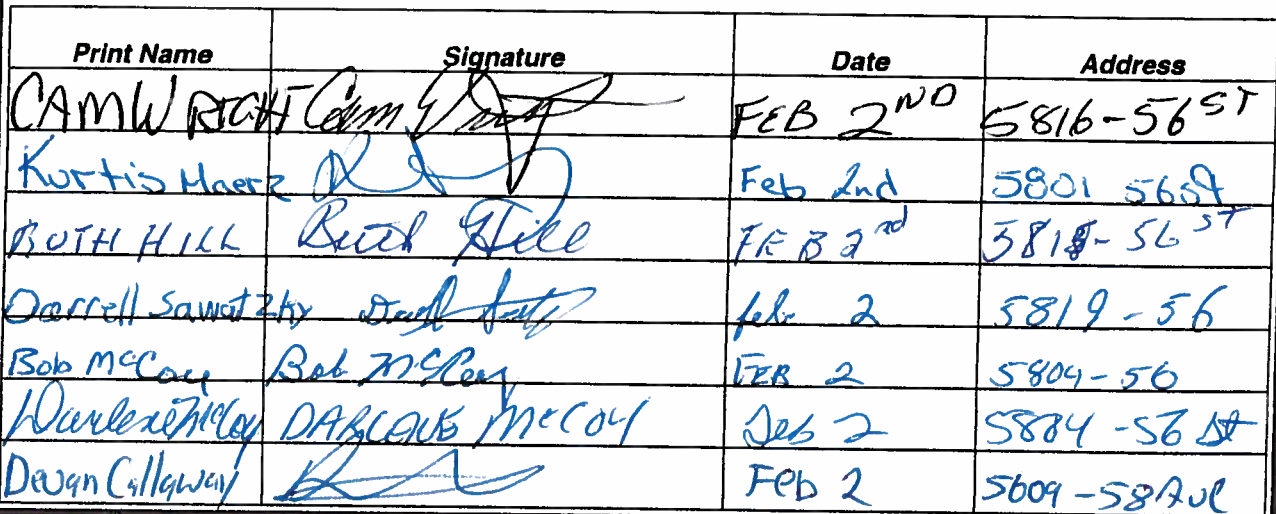 Print Name Signature Date Address
CAM WRIGHT Cam FEB 2ND 5816-56 ST
Kurtis Maerz Feb 2nd 5801 56st
RUTH HILL Ruth Hill FEB 2nd 5818-56 ST
Darrell Sawatzky feb 2 5819-56
Bob McCoy Bob McCoy FEB 2 5804-56
Darlene McCoy DARLENE McCoy Feb 2 5804-56 St
Devan Callaway Feb 2 5609-58 Ave